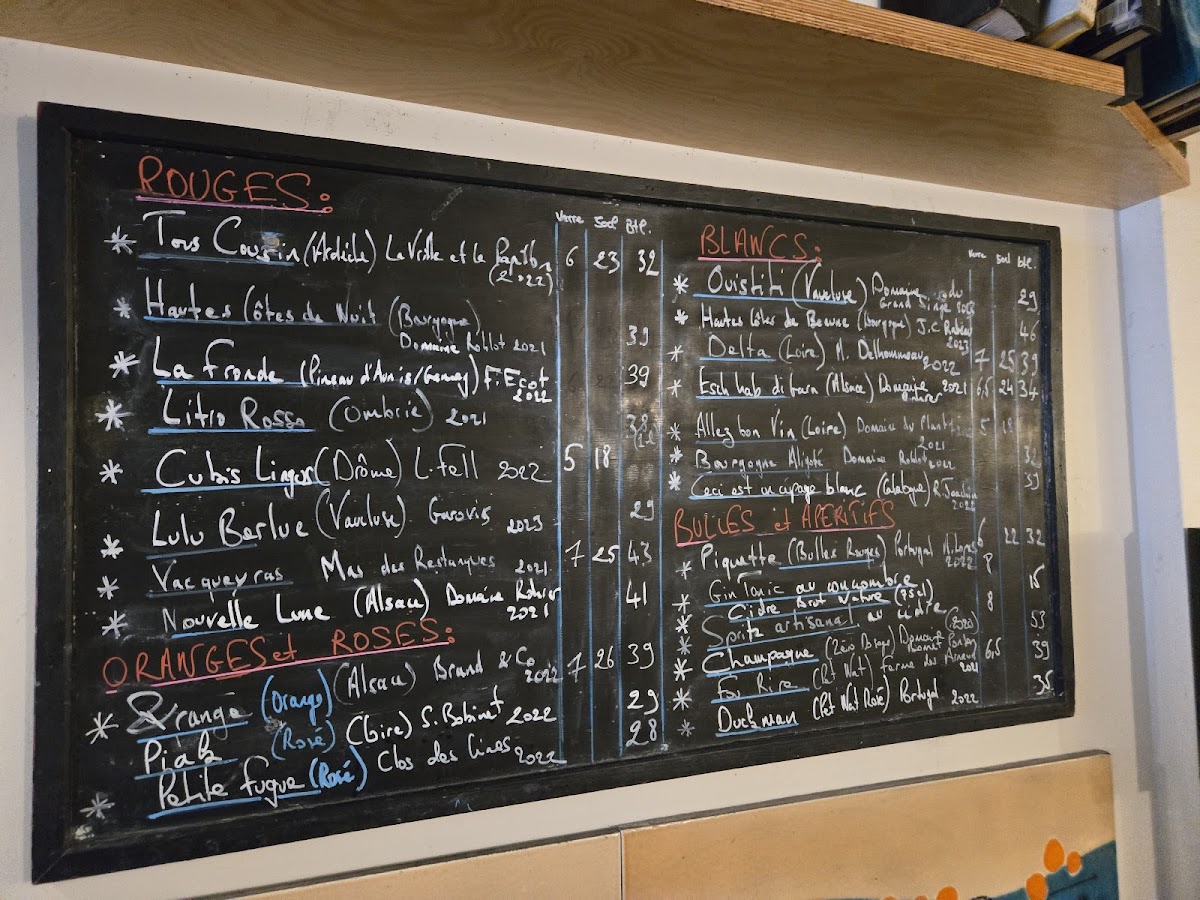 ROUGES:
Verre 50cl Btl.
* Tous Cousin (Ardèche) La Vrille et le Papillon 6 23 32
(2022)
* Hautes Côtes de Nuit (Bourgogne)
Domaine Rohlot 2021 39
* La Fronde (Pineau d'Aunis/Gamay) F. Ecot 39
2022
* Litro Rosso (Ombrie) 2021 38
* Cubis Linges (Drôme) L. Fell 2022 5 18
Lulu Berlue (Vaucluse) 2023 29
* Vacqueyras Mas des Restanques 2021 7 25 43
* Nouvelle Lune (Alsace) Domaine Rohrer 41
2021
ORANGES et ROSÉS:
* Orange (Orange) (Alsace) Brand & Co 7 26 39
2022
Piak (Rosé) (Loire) S. Bobinet 2022 29
* Petite fugue (Rosé) Clos des Cimes 2022 28
BLANCS:
Verre 50cl Btl.
* Ouistiti (Vaucluse) Domaine du 29
Grand Singe
* Hautes Côtes de Beaune (Bourgogne) J.C Rateau 46
2023
* Delta (Loire) M. Delhommeau 7 25 39
2022
* Esch hab di garn (Alsace) Domaine 2021 6,5 24 34
* Allez bon Vin (Loire) Domaine du 5 18
2021
* Bourgogne Aligoté Domaine Rohlot 2022 32
* Ceci est un cépage blanc (Catalogne) R. 39
BULLES et APÉRITIFS
* Piquette (Bulles Rouges) Portugal 6 22 32
2022
* Gin Tonic au concombre 8
* Cidre Brut Nature (75cl) 15
* Spritz artisanal au cidre 8
* Champagne (Zéro Dosage) Domaine (2020) 53
* Fou Rire (Pet Nat) Ferme des 6,5 39
2021
* Duckman (Pet Nat Rosé) Portugal 2022 35